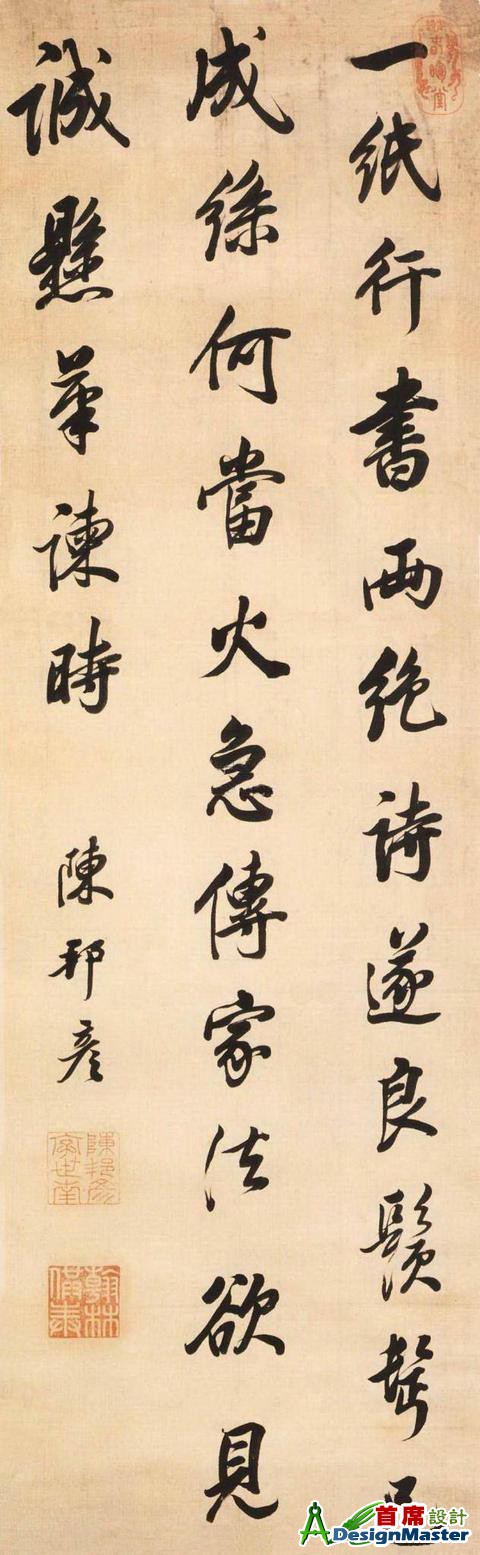 一紙行書兩絕詩遂良鬚鬢已
成絲何當火急傳家法欲見
誠懸筆諫時
陳邦彥
陳邦彥字世南
首席設計
DesignMaster